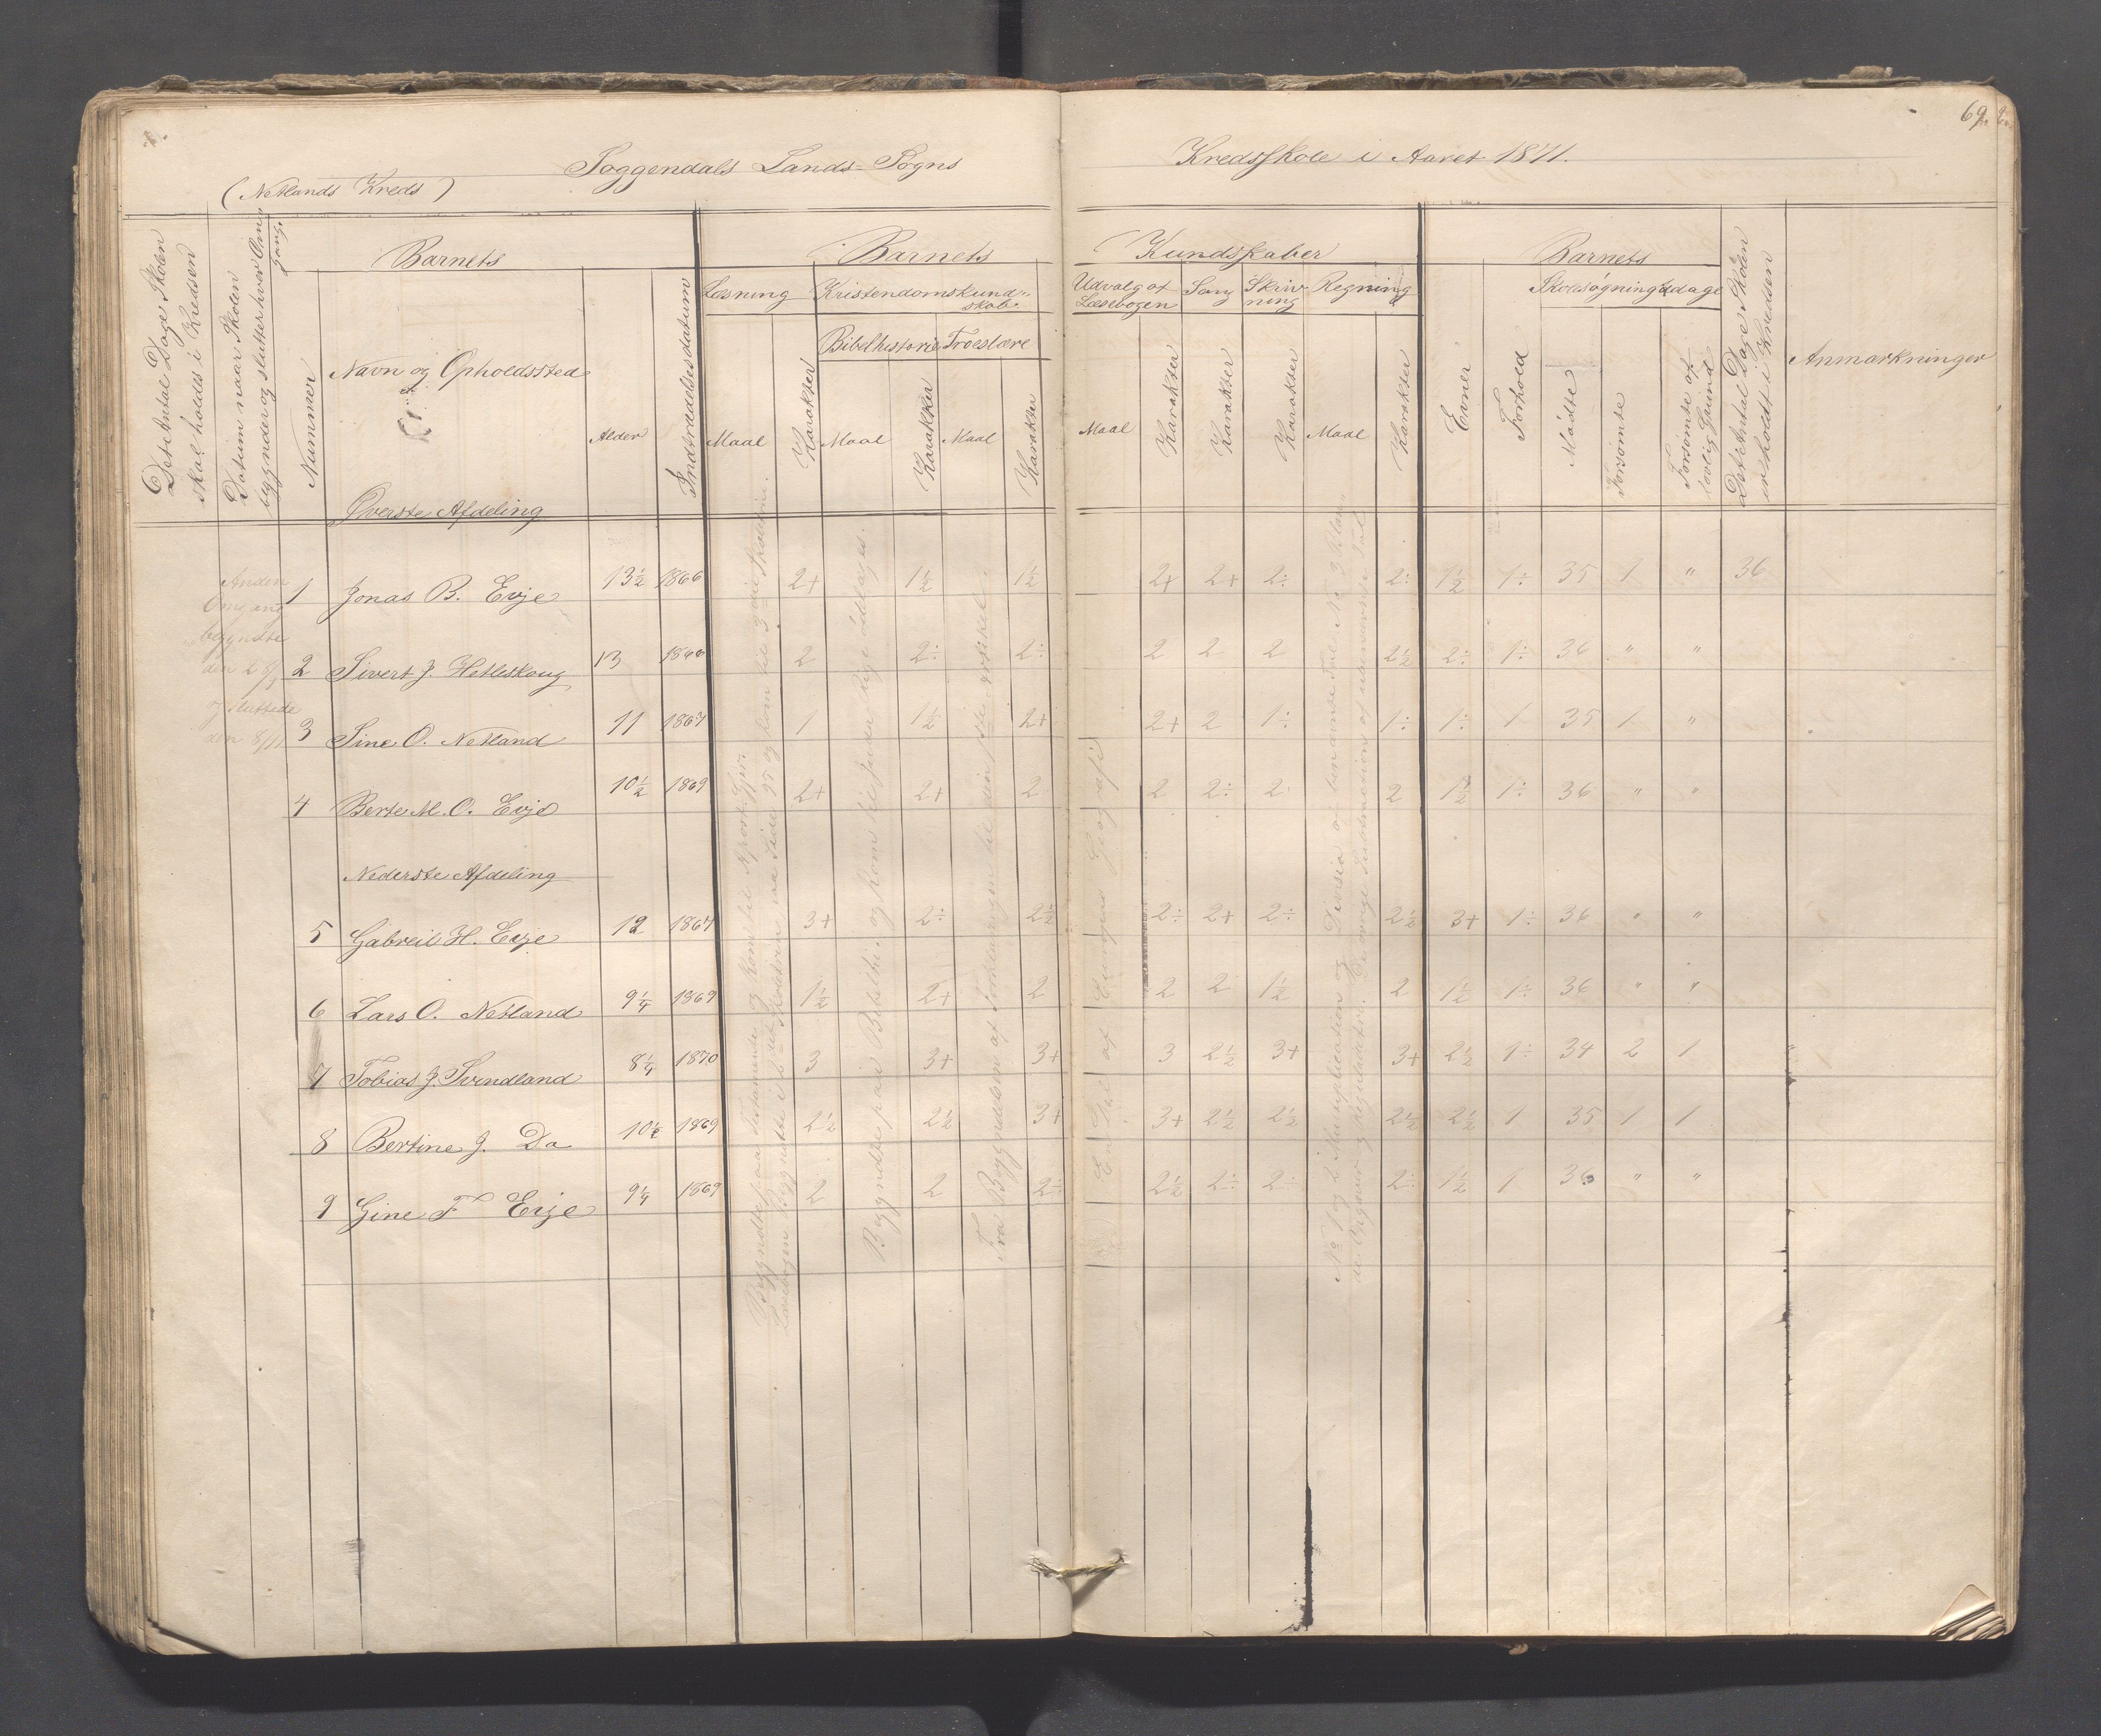 69.
Soggendals Lands-Sogns Kredsskole i Aaret 1871.
(Netlands Kreds)
Det Antal Dage Skolen skal holdes i Kredsen
Datum naar Skolen begynder og slutter hver Omgang
Barnets
Nummer
Navn og Opholdssted
Alder
Indtrædelsesdatum
Barnets Kundskaber
Læsning
Maal Karakter
Kristendomskundskab
Bibelhistorie Troeslære
Maal Karakter Maal Karakter
Udvalg af Læsebogen
Maal Karakter
Sang
Karakter
Skrivning
Karakter
Regning
Maal Karakter
Barnets
Evner
Forhold
Skolesøgningsdage
Mødte
Forsømte
Forsømte af lovlig Grund
Det Antal Dage Skolen er holdt i Kredsen
Anmærkninger
Øverste Afdeling
Anden Omgang begyndte den 28/9 og sluttede den 8/11
1 Jonas B. Evje 13½ 1866 2+ 1½ 1½ 2+ 2+ 2÷ 2÷ 1½ 1÷ 35 1 " 36
2 Sivert J. Hetleskoug 13 1866 2 2÷ 2÷ 2 2 2 2½ 2÷ 1÷ 36 " "
3 Sine O. Netland 11 1867 1 1½ 2+ 2+ 2 1÷ 1÷ 1÷ 1 35 1 "
4 Berte M. O. Evje 10½ 1869 2+ 2+ 2 2 2÷ 2 2 1½ 1÷ 36 " "
Nederste Afdeling
5 Gabreil H. Evje 12 1867 3+ 2÷ 2½ 2÷ 2+ 2÷ 2½ 3+ 1÷ 36 " "
6 Lars O. Netland 9¼ 1869 1½ 2+ 2 2 2 1½ 2 1½ 1÷ 36 " "
7 Tobias J. Svindland 8¼ 1870 3 3+ 3+ 3 2½ 3+ 3+ 2½ 1÷ 34 2 1 "
8 Bertine J. Do 10½ 1869 2½ 2½ 3+ 3+ 2½ 2½ 2½ 2½ 1 35 1 1
9 Gine F Evje 9¼ 1869 2 2 2÷ 2½ 2÷ 2÷ 2÷ 1½ 1 36 " "
Begyndte paa Testamente og kom til Apost. Gjer.
Læsebogen begyndte
Begyndte paa Bibelhi. og kom til Juda Rige ødelagges.
Fra Begyndelsen af Forklaringen til den Artikel.
En Del af Geografi
No 1 og 2 Multiplication og Division